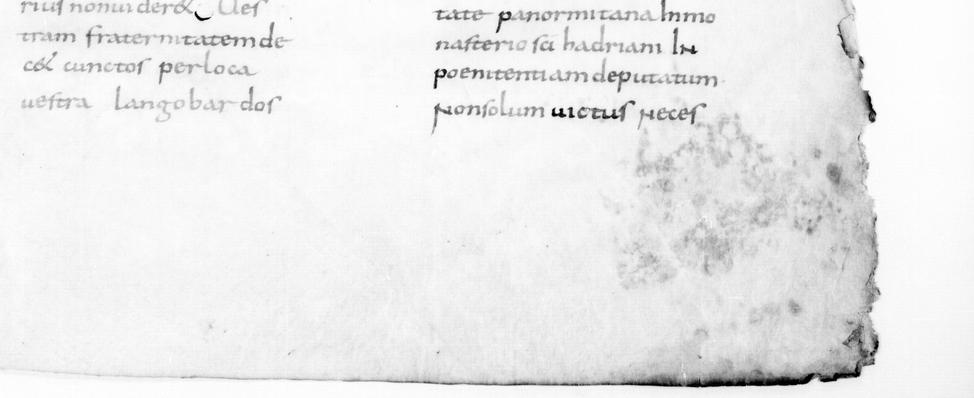 rius non uider& Ues
tram fraternitatem de
c& cunctos per loca
uestra langobardos
tate panormitana In mo
nasterio sci hadriani IN
poenitentiam deputatum
Non solum uictus Neces